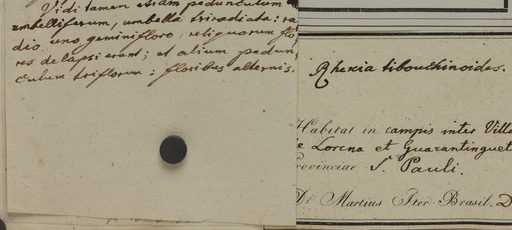 Vidi tamen etiam pedunculum
umbelliferum, umbella triradiata: ra
dio uno geminifloro, reliquorum flo
res delapsi erant; et alium pedun,
culum triflorum: floribus alternis.
Rhexia tibouchinoides.
Habitat in campis inter Villa
Lorena et Guarantinguet
Provinciae S. Pauli.
Dr Martius Iter Brasil. D